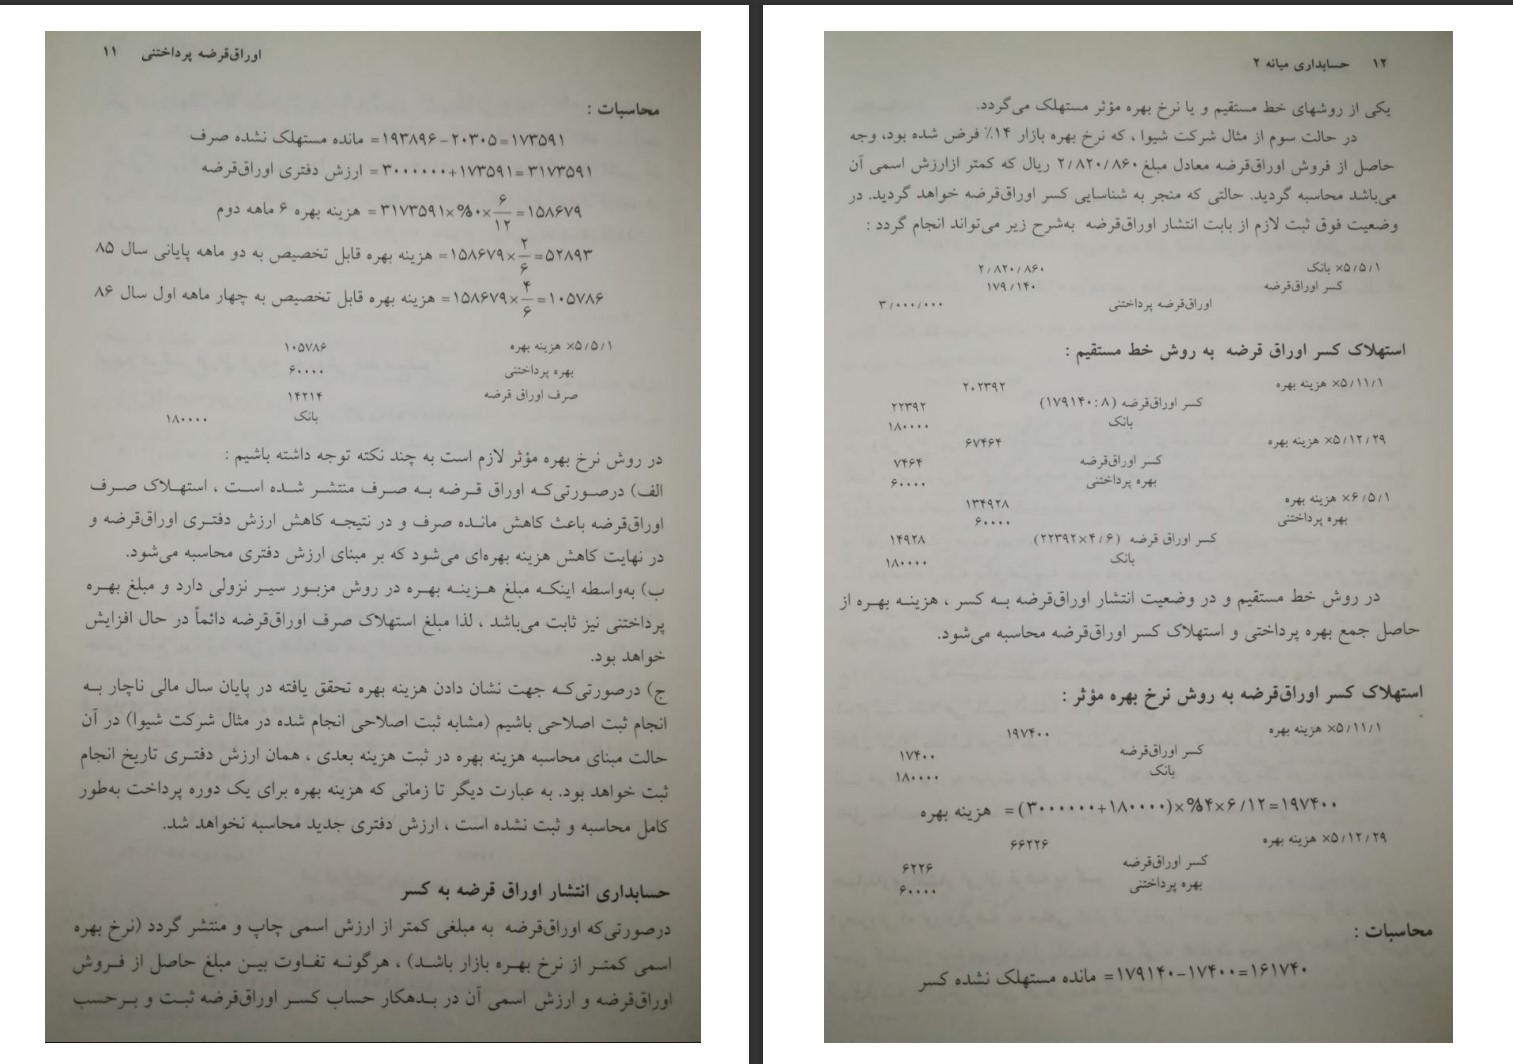 اوراق‌قرضه پرداختنی ۱۱
محاسبات :
۱۹۳۸۹۶-۲۰۳۰۵=۱۷۳۵۹۱ = مانده مستهلک نشده صرف
۳۰۰۰۰۰۰+۱۷۳۵۹۱=۳۱۷۳۵۹۱ = ارزش دفتری اوراق‌قرضه
۳۱۷۳۵۹۱×%۱۰×۶/۱۲=۱۵۸۶۷۹ = هزینه بهره ۶ ماهه دوم
۱۵۸۶۷۹×۲/۶=۵۲۸۹۳ = هزینه بهره قابل تخصیص به دو ماهه پایانی سال ۸۵
۱۵۸۶۷۹×۴/۶=۱۰۵۷۸۶ = هزینه بهره قابل تخصیص به چهار ماهه اول سال ۸۶
×۵/۵/۱ هزینه بهره ۱۰۵۷۸۶
بهره پرداختنی ۶۰۰۰۰
صرف اوراق قرضه ۱۴۲۱۴
بانک ۱۸۰۰۰۰
در روش نرخ بهره مؤثر لازم است به چند نکته توجه داشته باشیم :
الف) درصورتی‌که اوراق قرضه به صرف منتشر شده است ، استهلاک صرف
اوراق‌قرضه باعث کاهش مانده صرف و در نتیجه کاهش ارزش دفتری اوراق‌قرضه و
در نهایت کاهش هزینه بهره‌ای می‌شود که بر مبنای ارزش دفتری محاسبه می‌شود.
ب) به‌واسطه اینکه مبلغ هزینه بهره در روش مزبور سیر نزولی دارد و مبلغ بهره
پرداختنی نیز ثابت می‌باشد ، لذا مبلغ استهلاک صرف اوراق‌قرضه دائماً در حال افزایش
خواهد بود.
ج) درصورتی‌که جهت نشان دادن هزینه بهره تحقق یافته در پایان سال مالی ناچار به
انجام ثبت اصلاحی باشیم (مشابه ثبت اصلاحی انجام شده در مثال شرکت شیوا) در آن
حالت مبنای محاسبه هزینه بهره در ثبت هزینه بعدی ، همان ارزش دفتری تاریخ انجام
ثبت خواهد بود. به عبارت دیگر تا زمانی که هزینه بهره برای یک دوره پرداخت به‌طور
کامل محاسبه و ثبت نشده است ، ارزش دفتری جدید محاسبه نخواهد شد.
حسابداری انتشار اوراق قرضه به کسر
درصورتی‌که اوراق‌قرضه به مبلغی کمتر از ارزش اسمی چاپ و منتشر گردد (نرخ بهره
اسمی کمتر از نرخ بهره بازار باشد) ، هرگونه تفاوت بین مبلغ حاصل از فروش
اوراق‌قرضه و ارزش اسمی آن در بدهکار حساب کسر اوراق‌قرضه ثبت و برحسب
۱۲ حسابداری میانه ۲
یکی از روشهای خط مستقیم و یا نرخ بهره مؤثر مستهلک می‌گردد.
در حالت سوم از مثال شرکت شیوا ، که نرخ بهره بازار ۱۴٪ فرض شده بود، وجه
حاصل از فروش اوراق‌قرضه معادل مبلغ ۲/۸۲۰/۸۶۰ ریال که کمتر ازارزش اسمی آن
می‌باشد محاسبه گردید. حالتی که منجر به شناسایی کسر اوراق‌قرضه خواهد گردید. در
وضعیت فوق ثبت لازم از بابت انتشار اوراق‌قرضه به‌شرح زیر می‌تواند انجام گردد :
×۵/۵/۱ بانک ۲/۸۲۰/۸۶۰
کسر اوراق‌قرضه ۱۷۹/۱۴۰
اوراق‌قرضه پرداختنی ۳/۰۰۰/۰۰۰
استهلاک کسر اوراق قرضه به روش خط مستقیم :
×۵/۱۱/۱ هزینه بهره ۲۰۲۳۹۲
کسر اوراق‌قرضه (۱۷۹۱۴۰:۸) ۲۲۳۹۲
بانک ۱۸۰۰۰۰
×۵/۱۲/۲۹ هزینه بهره ۶۷۴۶۴
کسر اوراق‌قرضه ۷۴۶۴
بهره پرداختنی ۶۰۰۰۰
×۶/۵/۱ هزینه بهره ۱۳۴۹۲۸
بهره پرداختنی ۶۰۰۰۰
کسر اوراق قرضه (۲۲۳۹۲×۴/۶) ۱۴۹۲۸
بانک ۱۸۰۰۰۰
در روش خط مستقیم و در وضعیت انتشار اوراق‌قرضه به کسر ، هزینه بهره از
حاصل جمع بهره پرداختی و استهلاک کسر اوراق‌قرضه محاسبه می‌شود.
استهلاک کسر اوراق‌قرضه به روش نرخ بهره مؤثر :
×۵/۱۱/۱ هزینه بهره ۱۹۷۴۰۰
کسر اوراق‌قرضه ۱۷۴۰۰
بانک ۱۸۰۰۰۰
(۳۰۰۰۰۰۰+۱۸۰۰۰۰)×%۱۴×۶/۱۲=۱۹۷۴۰۰ = هزینه بهره
×۵/۱۲/۲۹ هزینه بهره ۶۶۲۲۶
کسر اوراق‌قرضه ۶۲۲۶
بهره پرداختنی ۶۰۰۰۰
محاسبات :
۱۷۹۱۴۰-۱۷۴۰۰=۱۶۱۷۴۰ = مانده مستهلک نشده کسر